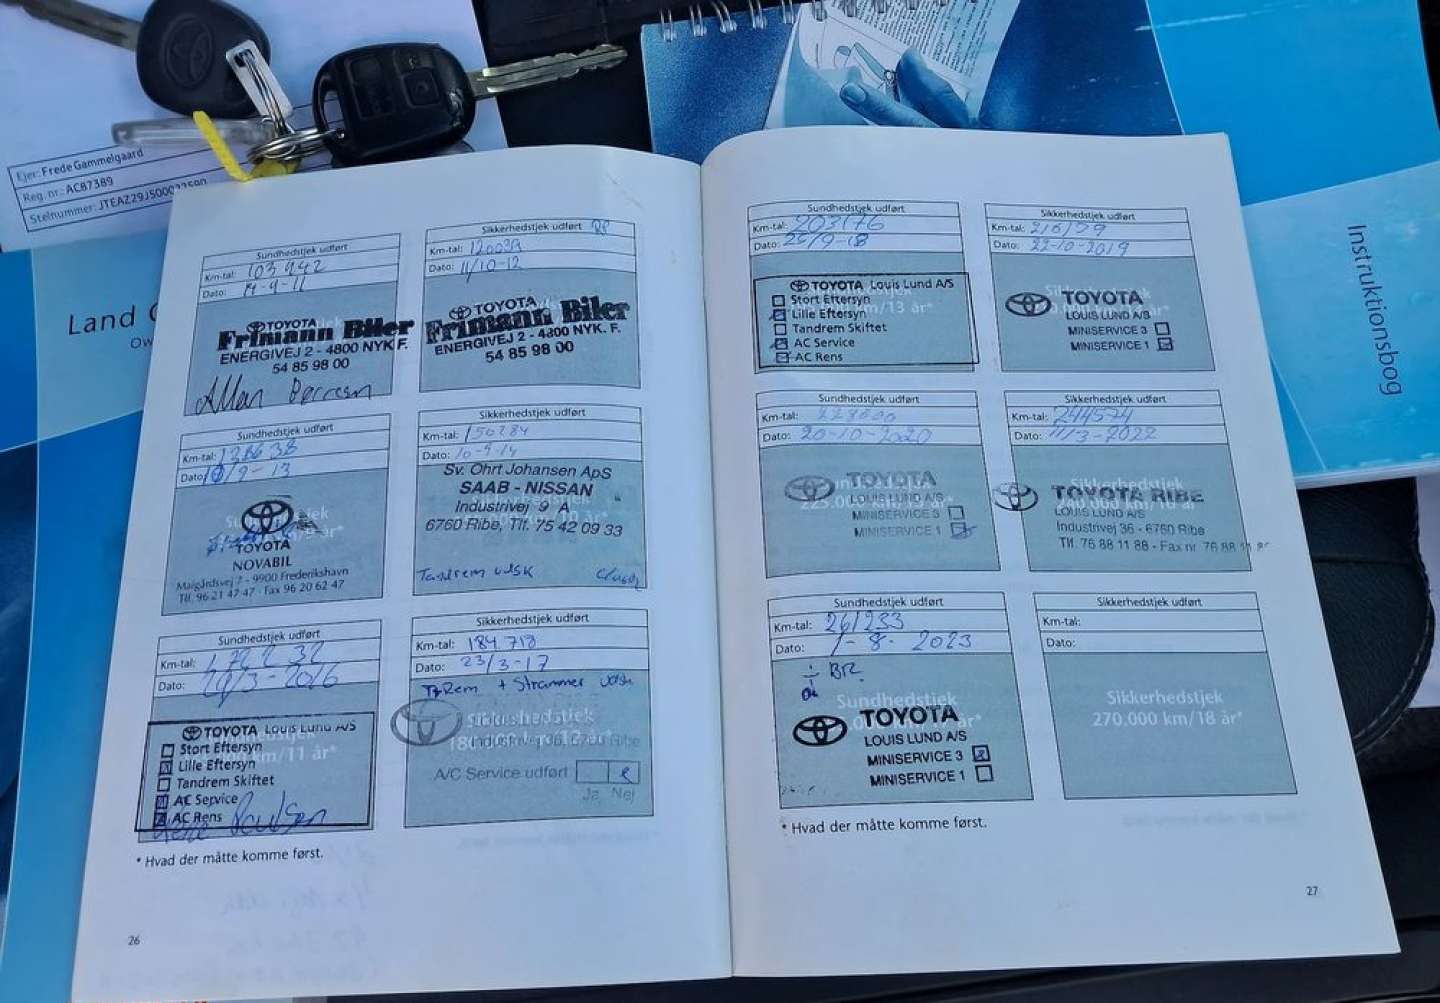 Ejer: Frede Gammelgaard
Reg. nr.: AC87389
Stelnummer: JTEAZ29J500
Land
Instruktionsbog
Sundhedstjek udført
Km-tal: 103942
Dato: 19-9-11
TOYOTA
Frimann Biler
ENERGIVEJ 2 - 4800 NYK F.
54 85 98 00
Sikkerhedstjek udført
Km-tal:
Dato: 11/10-12
TOYOTA
Frimann Biler
ENERGIVEJ 2 - 4800 NYK. F.
54 85 98 00
Sundhedstjek udført
Km-tal: 138638
Dato: 10/9-13
TOYOTA
NOVABIL
Mølgårdsvej 7 - 9900 Frederikshavn
Tlf. 96 21 47 47 - Fax 96 20 62 47
Sikkerhedstjek udført
Km-tal: 150284
Dato: 10-9-14
Sv. Ohrt Johansen ApS
SAAB - NISSAN
Industrivej 9 A
6760 Ribe, Tlf. 75 42 09 33
Tandrem udsk
Sundhedstjek udført
Km-tal: 172232
Dato: 29/3-2016
TOYOTA Louis Lund A/S
Stort Eftersyn
Lille Eftersyn
Tandrem Skiftet
AC Service
AC Rens
Sikkerhedstjek udført
Km-tal: 184 718
Dato: 23/3-17
T/Rem + Strammer udsk
Sikkerhedstjek
Industrivej 36, 6760 Ribe
A/C Service udført
Ja Nej
* Hvad der måtte komme først.
26
Sundhedstjek udført
Km-tal: 203176
Dato: 25/9-18
TOYOTA Louis Lund A/S
Stort Eftersyn
Lille Eftersyn
Tandrem Skiftet
AC Service
AC Rens
Sikkerhedstjek udført
Km-tal:
Dato: 22-10-2019
TOYOTA
LOUIS LUND A/S
MINISERVICE 3
MINISERVICE 1
Sundhedstjek udført
Km-tal:
Dato: 20-10-2020
TOYOTA
LOUIS LUND A/S
MINISERVICE 3
MINISERVICE 1
Sikkerhedstjek udført
Km-tal: 244574
Dato: 11/3-2022
TOYOTA RIBE
LOUIS LUND A/S
Industrivej 36 - 6760 Ribe
Tlf. 76 88 11 88 - Fax nr. 76 88
Sundhedstjek udført
Km-tal: 261233
Dato: 1-8-2023
Sundhedstjek
TOYOTA
LOUIS LUND A/S
MINISERVICE 3
MINISERVICE 1
Sikkerhedstjek udført
Km-tal:
Dato:
Sikkerhedstjek
270.000 km/18 år*
* Hvad der måtte komme først.
27